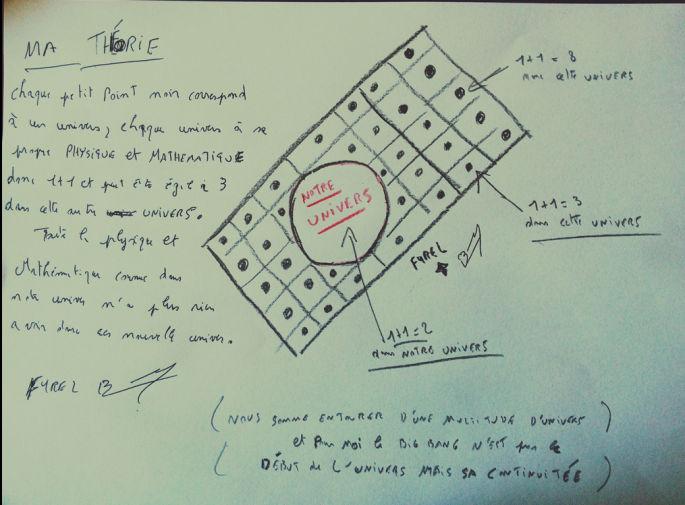 MA THÉORIE
Chaque petit Point noir correspond
à un univers, chaque univers à sa
propre PHYSIQUE et MATHEMATIQUE
donc 1+1 et peut être égal à 3
dans cette autre UNIVERS.
Toute la physique et
Mathématique connue dans
notre univers n'a plus rien
a voir dans ces nouvelle univers.
FYREL B
NOTRE
UNIVERS
1+1=8
dans cette UNIVERS
1+1=3
dans cette UNIVERS
FYREL B
1+1=2
dans NOTRE UNIVERS
(NOUS SOMME ENTOURER D'UNE MULTITUDE D'UNIVERS)
et Pour Moi le BIG BANG N'EST pas le
(DÉBUT de L'UNIVERS MAIS SA CONTINUITÉE)